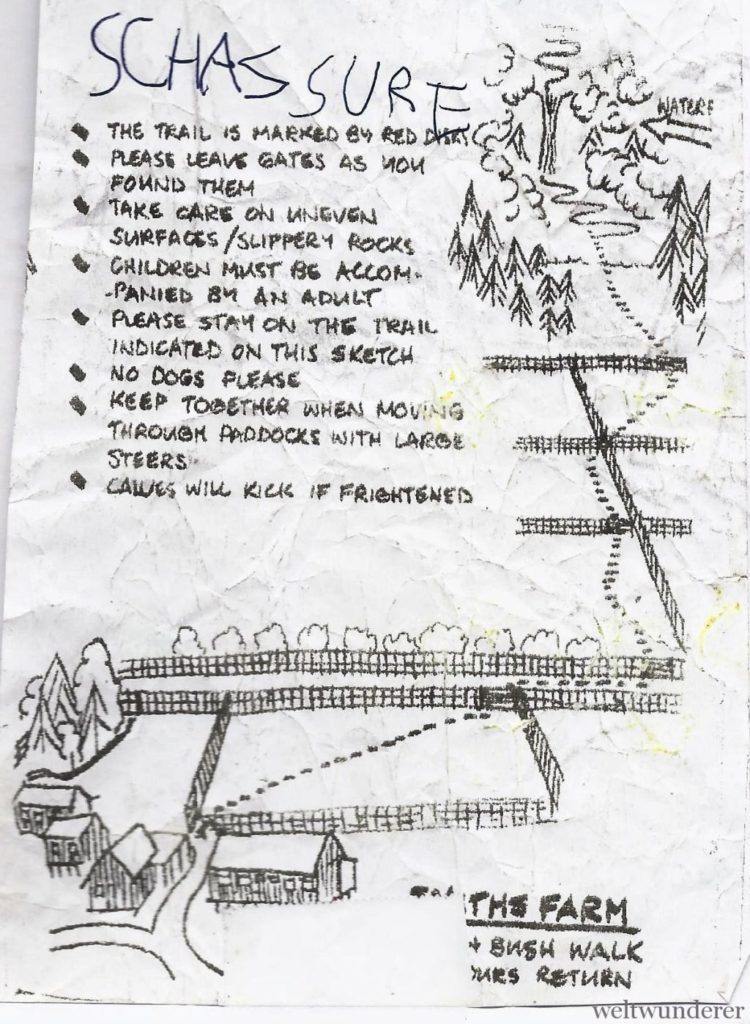 SCHASSURE
THE TRAIL IS MARKED BY RED DISKS
PLEASE LEAVE GATES AS YOU
FOUND THEM
TAKE CARE ON UNEVEN
SURFACES/SLIPPERY ROCKS
CHILDREN MUST BE ACCOM-
-PANIED BY AN ADULT
PLEASE STAY ON THE TRAIL
INDICATED ON THIS SKETCH
NO DOGS PLEASE
KEEP TOGETHER WHEN MOVING
THROUGH PADDOCKS WITH LARGE
STEERS
CALVES WILL KICK IF FRIGHTENED
WATERF
THE FARM
+ BUSH WALK
URS RETURN
weltwunderer